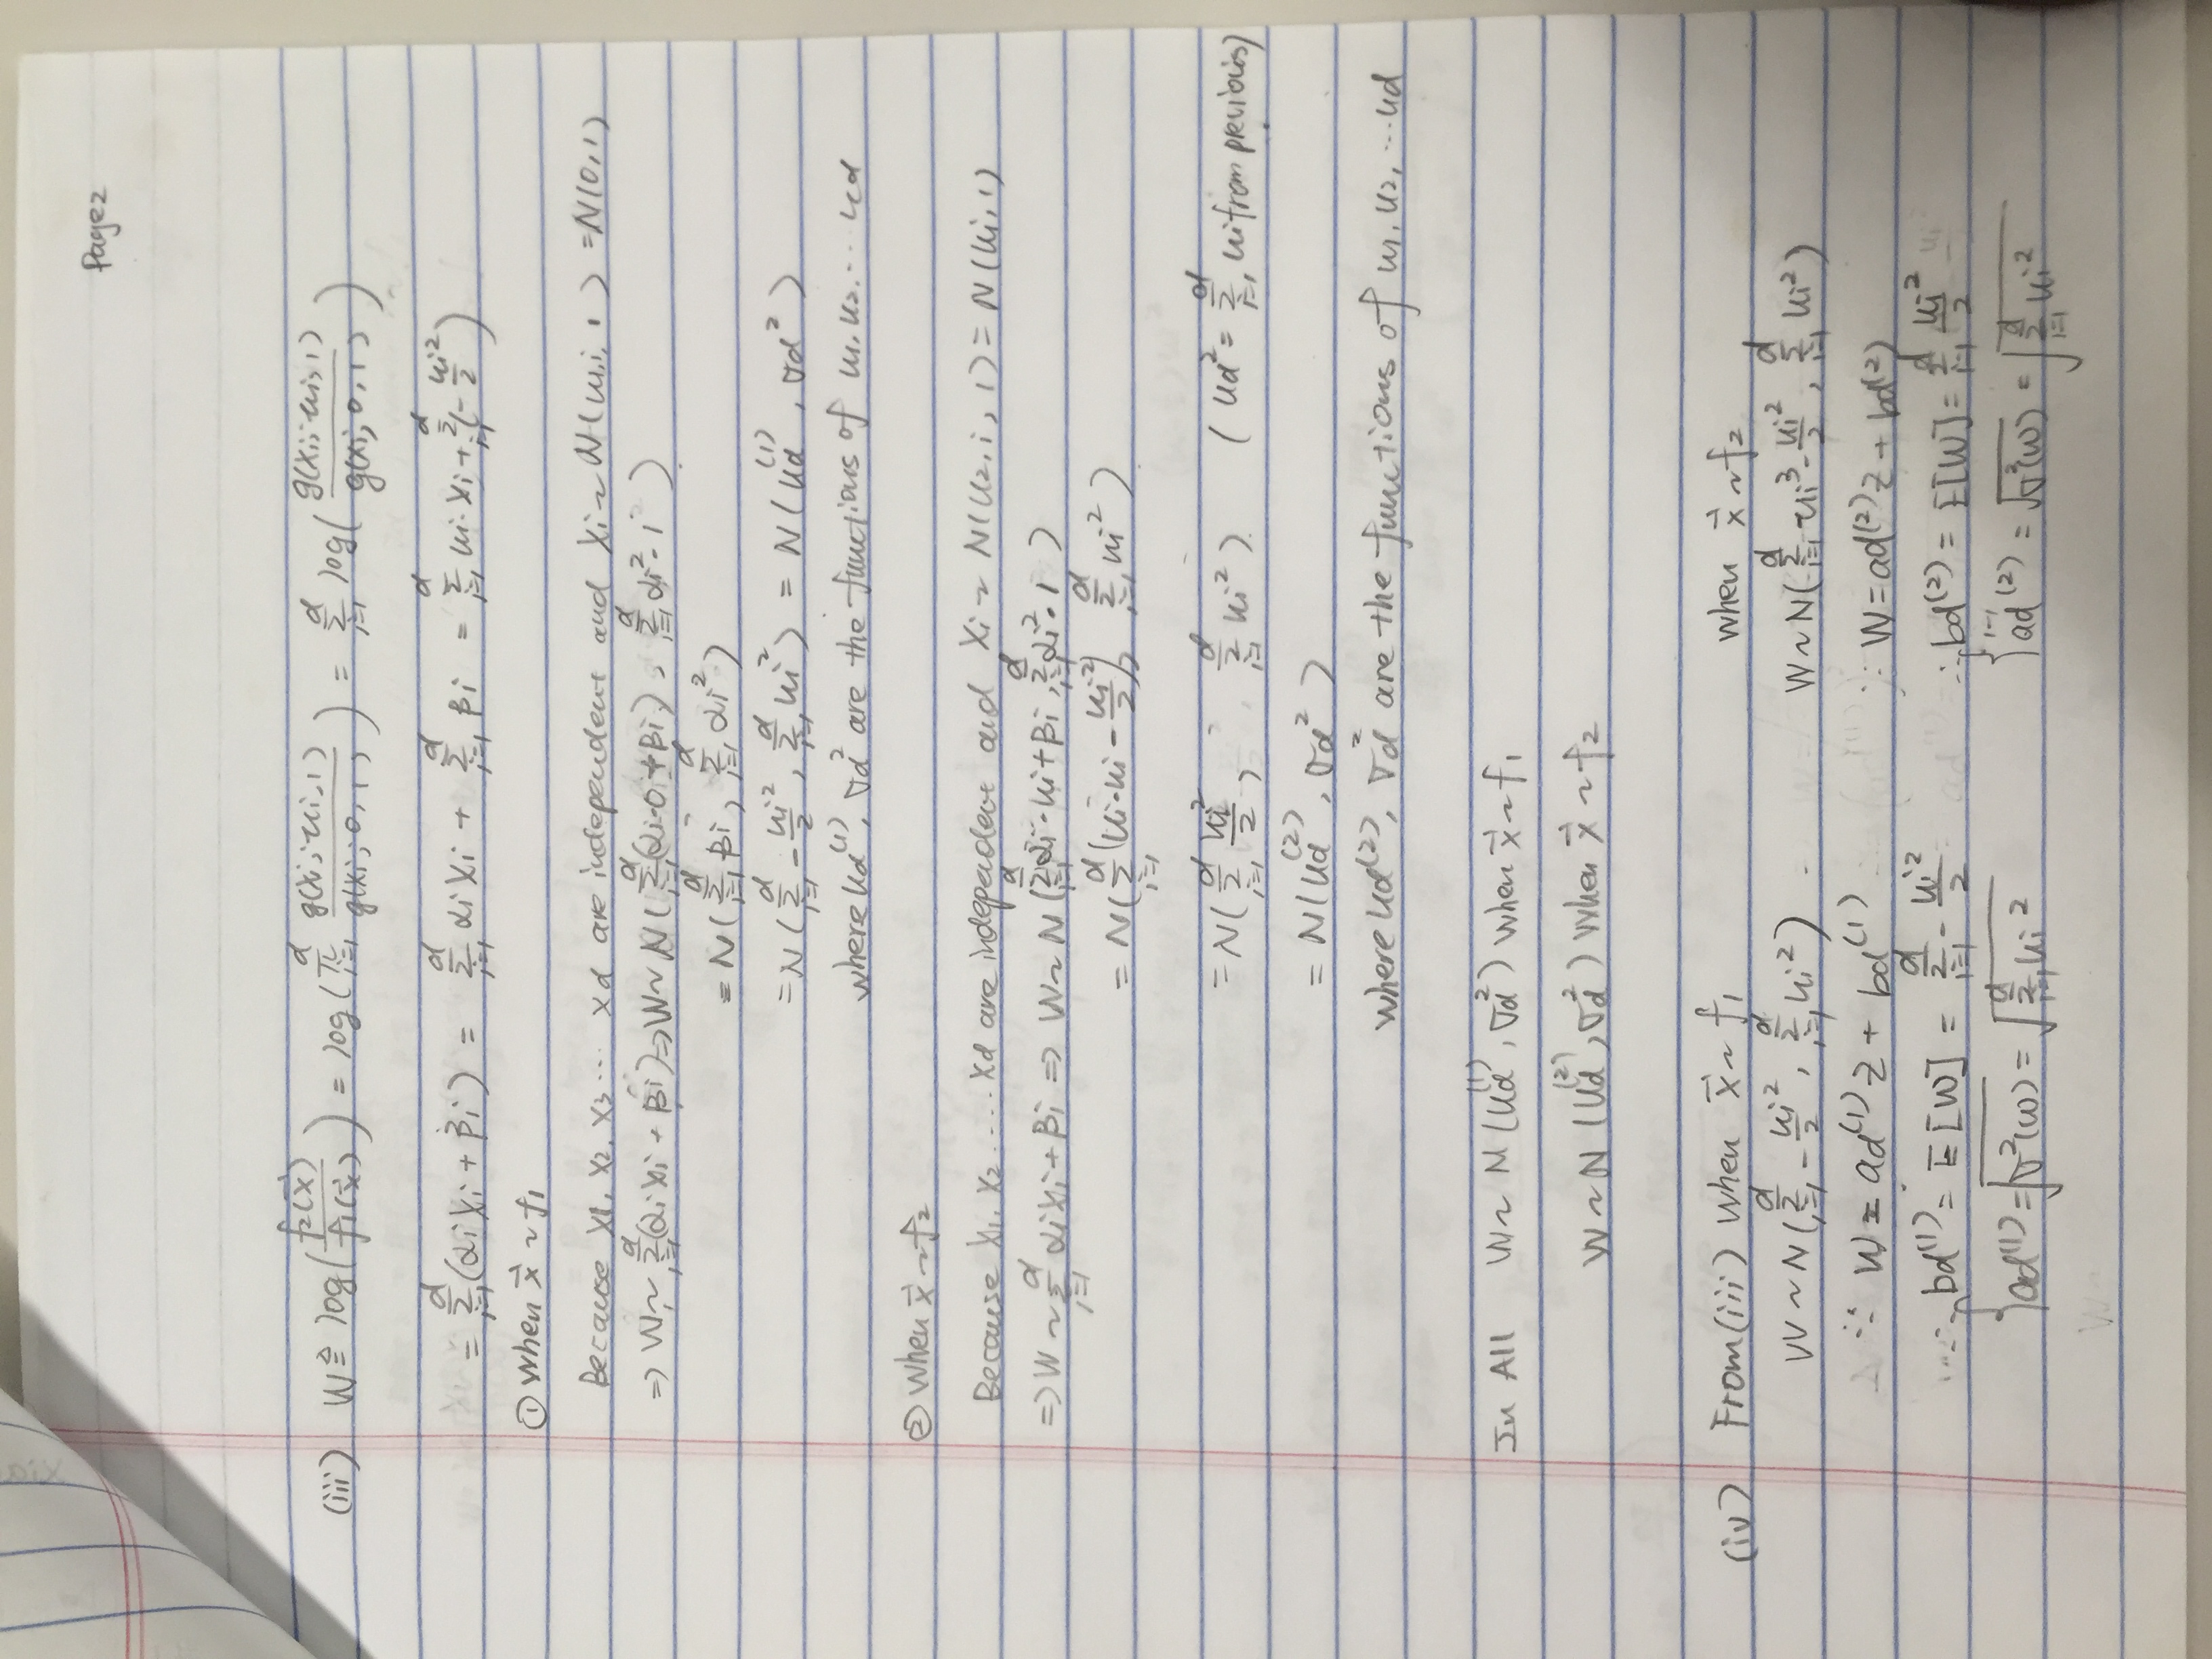 Page2
(iii) W ≜ log(f₂(x⃗)/f₁(x⃗)) = log(π_{i=1}^{d} g(xi; ui, 1)/g(xi; 0, 1)) = Σ_{i=1}^{d} log(g(xi; ui, 1)/g(xi; 0, 1))
= Σ_{i=1}^{d}(αi xi + βi) = Σ_{i=1}^{d} αi xi + Σ_{i=1}^{d} βi = Σ_{i=1}^{d} ui·xi + Σ_{i=1}^{d}(-ui²/2)
① When x⃗ ~ f₁
Because x1, x2, x3 ··· xd are independent and xi ~ N(u1,i, 1) = N(0,1)
⇒ W ~ Σ_{i=1}^{d}(αi xi + βi) ⇒ W ~ N(Σ_{i=1}^{d}(αi·0 + βi), Σ_{i=1}^{d} αi²·1²)
= N(Σ_{i=1}^{d} βi, Σ_{i=1}^{d} αi²)
= N(Σ_{i=1}^{d} -ui²/2, Σ_{i=1}^{d} ui²) = N(ud⁽¹⁾, σd²)
where ud⁽¹⁾, σd² are the functions of u1, u2, ··· ud
② When x⃗ ~ f₂
Because x1, x2 ····· xd are independent and xi ~ N(u2,i, 1) = N(ui, 1)
⇒ W ~ Σ_{i=1}^{d} αi xi + βi ⇒ W ~ N(Σ_{i=1}^{d} αi·ui + βi, Σ_{i=1}^{d} αi²·1)
= N(Σ_{i=1}^{d}(ui·ui - ui²/2), Σ_{i=1}^{d} ui²)
= N(Σ_{i=1}^{d} ui²/2, Σ_{i=1}^{d} ui²) (ud² = Σ_{i=1}^{d} ui from previous)
= N(ud⁽²⁾, σd²)
where ud⁽²⁾, σd² are the functions of u1, u2, ··· ud
In All W ~ N(ud⁽¹⁾, σd²) when x⃗ ~ f₁
W ~ N(ud⁽²⁾, σd²) When x⃗ ~ f₂
(iv) From (iii) when x⃗ ~ f₁ when x⃗ ~ f₂
W ~ N(Σ_{i=1}^{d} -ui²/2, Σ_{i=1}^{d} ui²) W ~ N(Σ_{i=1}^{d} ui³ - ui²/2, Σ_{i=1}^{d} ui²)
∵ W = ad⁽¹⁾z + bd⁽¹⁾ ∵ W = ad⁽²⁾z + bd⁽²⁾
∴ { bd⁽¹⁾ = E[W] = Σ_{i=1}^{d} -ui²/2 ∴ { bd⁽²⁾ = E[W] = Σ_{i=1}^{d} ui²/2
ad⁽¹⁾ = √σ²(w) = √Σ_{i=1}^{d} ui² ad⁽²⁾ = √σ²(w) = √Σ_{i=1}^{d} ui²